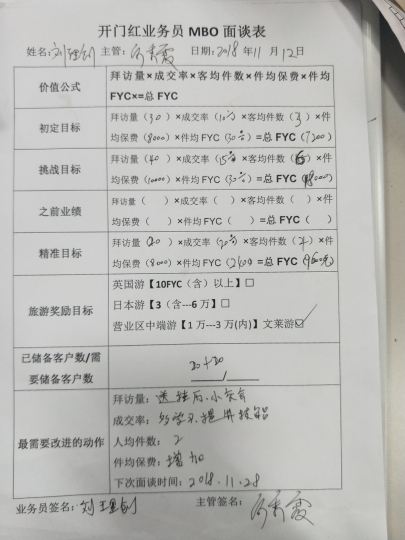 开门红业务员 MBO 面谈表
姓名: 主管: 日期: 2018年11月12日
价值公式
拜访量×成交率×客均件数×件均保费×件均
FYC×=总 FYC
初定目标
拜访量（30）×成交率（10%）×客均件数（3）×件
均保费（8000）×件均 FYC（30%）=总 FYC（7200）
挑战目标
拜访量（40）×成交率（15%）×客均件数（）×件
均保费（10000）×件均 FYC（30%）=总 FYC（）
之前业绩
拜访量（ ）×成交率（ ）×客均件数（ ）×件
均保费（ ）×件均 FYC（ ）=总 FYC（ ）
精准目标
拜访量（20）×成交率（20%）×客均件数（）×件
均保费（8000）×件均 FYC（2400）=总 FYC（）
旅游奖励目标
英国游【10FYC（含）以上】□
日本游【3（含---6 万】□
营业区中端游【1 万---3 万(内)】文莱游☑
已储备客户数/需
要储备客户数
20+20
/
最需要改进的动作
拜访量：
成交率：
人均件数：2
件均保费：增加
下次面谈时间：2018.11.28
业务员签名： 主管签名：